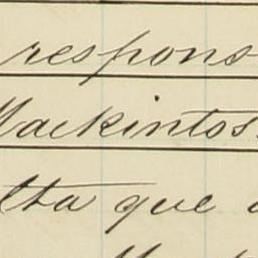 respons
Mackintos
lta que a